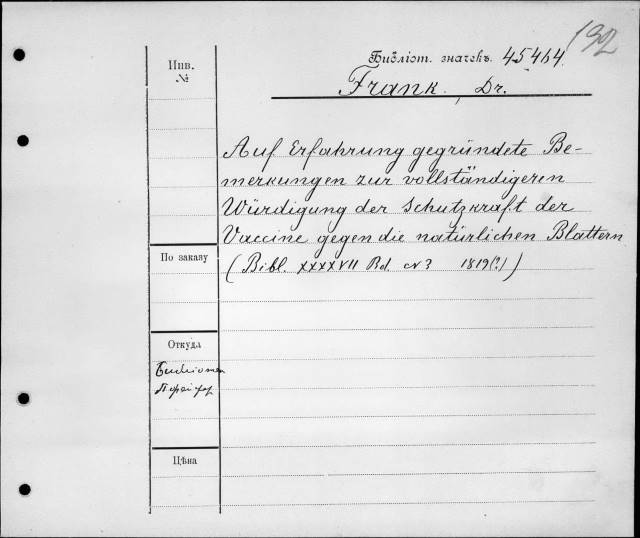 132
Инв.
№
Библіот. значекъ. 45464.
Frank, Dr.
Auf Erfahrung gegründete Be-
merkungen zur vollständigeren
Würdigung der Schutzkraft der
Vaccine gegen die natürlichen Blattern
(Bibl. XXXXVII Bd. № 3 1819(?))
По заказу
Откуда
Цѣна